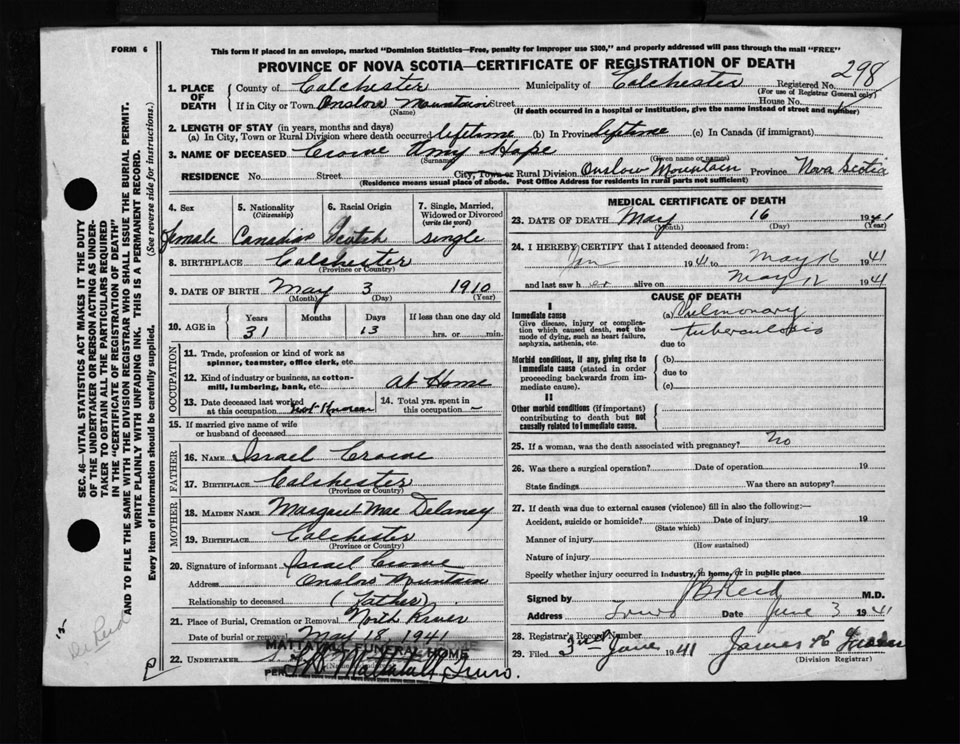 FORM 6
This form if placed in an envelope, marked "Dominion Statistics—Free, penalty for improper use $300," and properly addressed will pass through the mail "FREE"
PROVINCE OF NOVA SCOTIA—CERTIFICATE OF REGISTRATION OF DEATH
298
1. PLACE OF DEATH County of Colchester Municipality of Colchester Registered No.
(For use of Registrar General only)
If in City or Town Onslow Mountain Street House No.
(Name) (If death occurred in a hospital or institution, give the name instead of street and number)
2. LENGTH OF STAY (in years, months and days)
(a) In City, Town or Rural Division where death occurred lifetime (b) In Province lifetime (c) In Canada (if immigrant)
3. NAME OF DECEASED Crowe Amy Hope
(Surname) (Given name or names)
RESIDENCE No. Street City, Town or Rural Division Onslow Mountain Province Nova Scotia
(Residence means usual place of abode. Post Office Address for residents in rural parts not sufficient)
4. Sex female
5. Nationality (Citizenship) Canadian
6. Racial Origin Scotch
7. Single, Married, Widowed or Divorced (write the word) single
8. BIRTHPLACE Colchester
(Province or Country)
9. DATE OF BIRTH May 3 1910
(Month) (Day) (Year)
10. AGE in Years 31 Months Days 13 If less than one day old hrs. or min.
OCCUPATION
11. Trade, profession or kind of work as spinner, teamster, office clerk, etc.
12. Kind of industry or business, as cotton-mill, lumbering, bank, etc. At Home
13. Date deceased last worked at this occupation not known
14. Total yrs. spent in this occupation –
15. If married give name of wife or husband of deceased
FATHER
16. NAME Israel Crowe
17. BIRTHPLACE Colchester
(Province or Country)
MOTHER
18. MAIDEN NAME Margaret Mae Delaney
19. BIRTHPLACE Colchester
(Province or Country)
20. Signature of informant Israel Crowe
Address Onslow Mountain
Relationship to deceased (Father)
21. Place of Burial, Cremation or Removal North River
Date of burial or removal May 18, 1941
MATTATALL FUNERAL HOME
22. UNDERTAKER Mattatall, Truro.
MEDICAL CERTIFICATE OF DEATH
23. DATE OF DEATH May 16 1941
(Month) (Day) (Year)
24. I HEREBY CERTIFY that I attended deceased from:
Jan 1941 to May 16 1941
and last saw her alive on May 12 1941
CAUSE OF DEATH
I
Immediate cause (a) Pulmonary tuberculosis
Give disease, injury or complication which caused death, not the mode of dying, such as heart failure, asphyxia, asthenia, etc.
due to
Morbid conditions, if any, giving rise to immediate cause (stated in order proceeding backwards from immediate cause).
(b)
due to
(c)
II
Other morbid conditions (if important) contributing to death but not causally related to immediate cause.
25. If a woman, was the death associated with pregnancy? No
26. Was there a surgical operation? Date of operation 19
State findings Was there an autopsy?
27. If death was due to external causes (violence) fill in also the following:—
Accident, suicide or homicide? Date of injury 19
(State which)
Manner of injury
(How sustained)
Nature of injury
Specify whether injury occurred in industry, in home, or in public place
Signed by Reid M.D.
Address Truro Date June 3 1941
28. Registrar's Record Number
29. Filed 3rd June 1941 James
(Division Registrar)
SEC. 46—VITAL STATISTICS ACT MAKES IT THE DUTY
OF THE UNDERTAKER OR PERSON ACTING AS UNDER-
TAKER TO OBTAIN ALL THE PARTICULARS REQUIRED
IN THE "CERTIFICATE OF REGISTRATION OF DEATH"
AND TO FILE THE SAME WITH THE DIVISION REGISTRAR WHO SHALL ISSUE THE BURIAL PERMIT.
WRITE PLAINLY WITH UNFADING INK. THIS IS A PERMANENT RECORD.
Every item of information should be carefully supplied. (See reverse side for instructions.)
Dr Reid